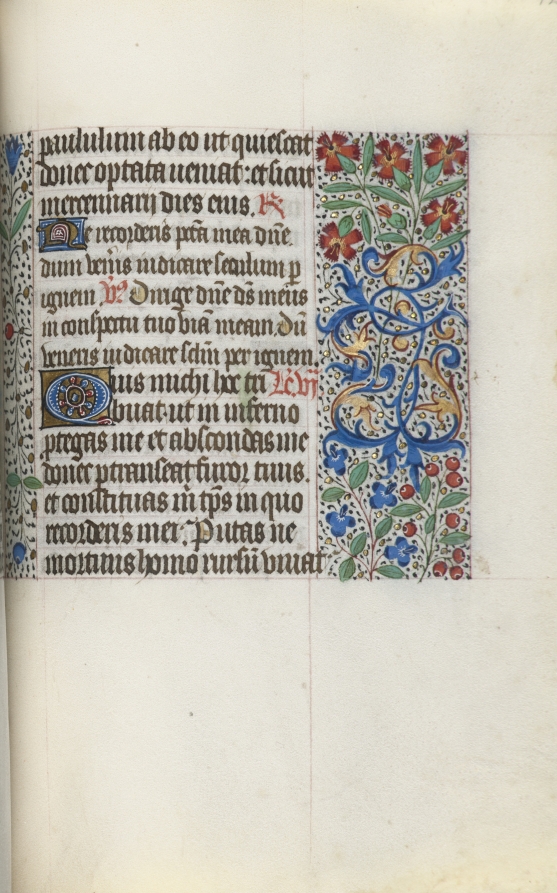 paululum ab eo ut quiescat
donec optata ueniat: et sicut
mercennarij dies eius. R
Ne recorderis pctā mea dñe.
dum veñis iudicare seculum p
ignem Vs Dirige dñe ds meus
in conspectu tuo viā meam. Dū
veneris iudicare sclm per ignem.
Quis michi hoc tri Lc vij
buat. ut in inferno
ptegas me et abscondas me
donec ptranseat furor tuus.
et constituas m tps in quo
recorderis mei. Putas ne
mortuus homo rursū viuat